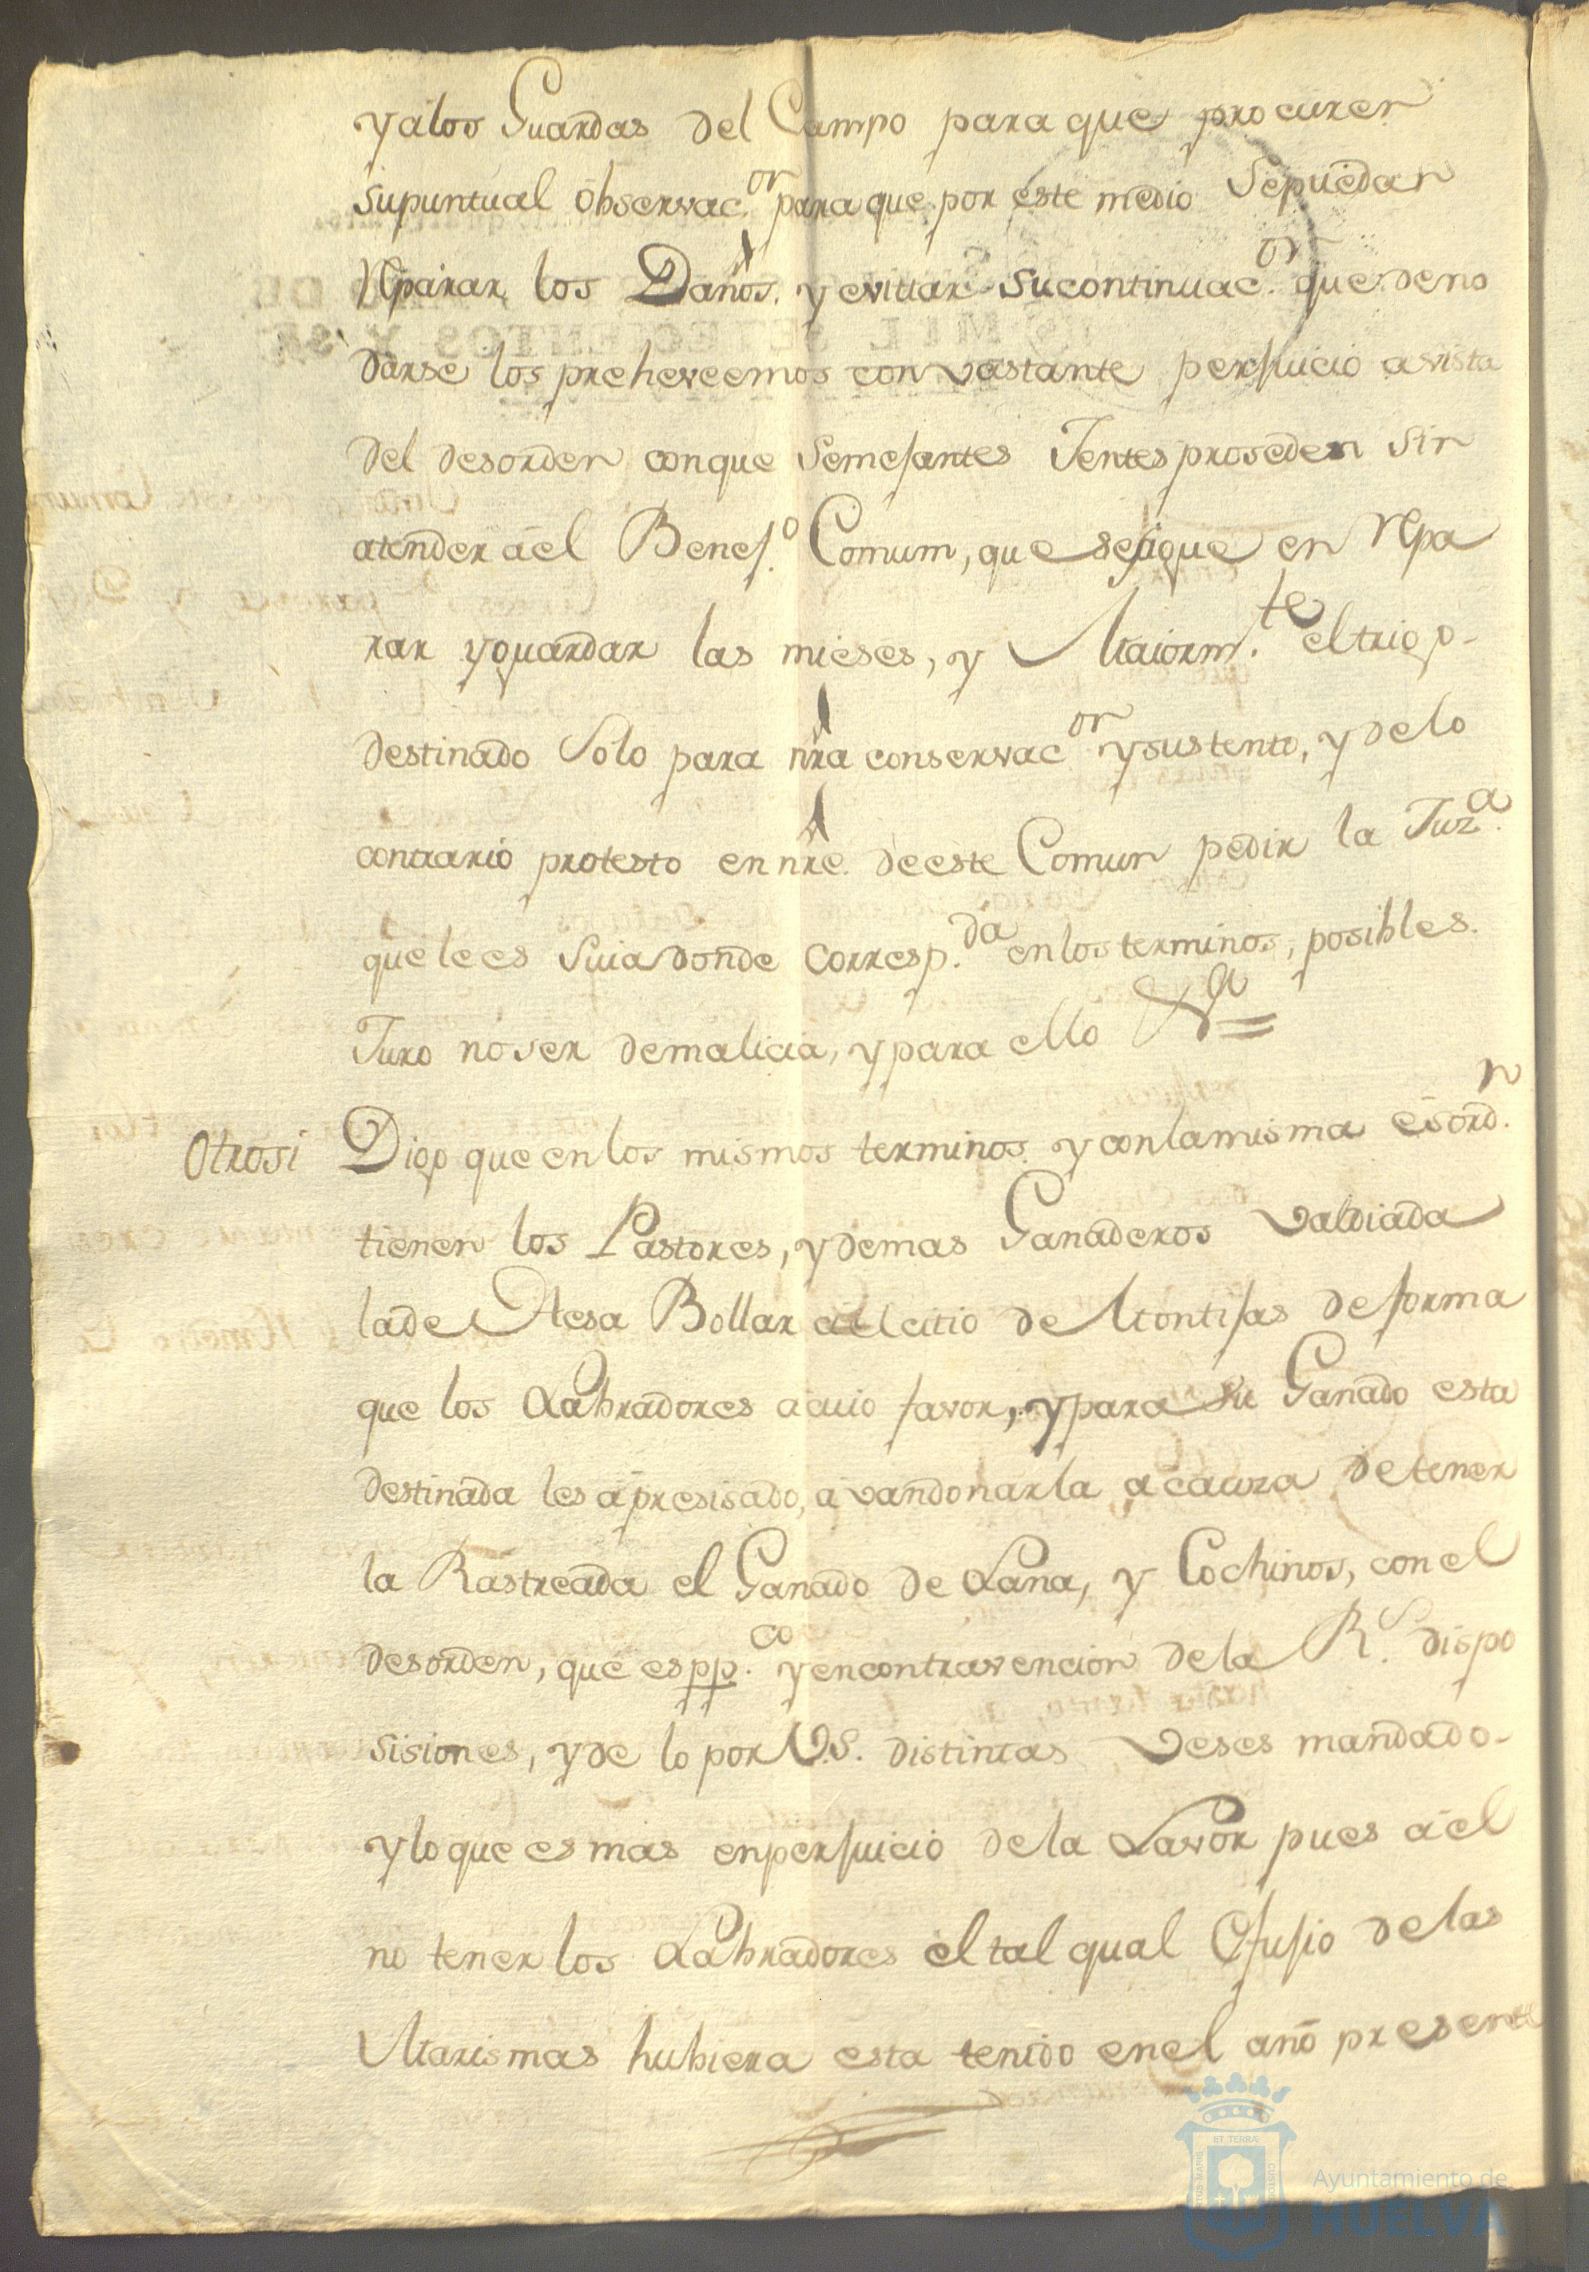 y a los Guardas del Campo para que procuren
su puntual observac.on para que por este medio se puedan
Reparar los Daños. y evittar su continuac.on que de no
darse los preheveemos con vastante perjuicio a vista
del desorden con que Semejantes Jentes proseden sin
atender á el Benef.o Comum, que se sigue en Repa
rar y guardar las mieses, y Maiorm.te el trigo-
destinado Solo para nra conservac.on y sustento, y de lo
contrario protesto en nre. de este Comun pedir la Juz.a
que le es Suia donde corresp.da en los terminos, posibles.
Juro no ser de malicia, y para ello &a=
Otrosi Digo que en los mismos terminos. y con la misma esord.n
tienen los Pastores, y demas Ganaderos valdiada
la de Hesa Bollar á el citio de Montijas de forma
que los Labradores a cuio favor, y para su Ganado esta
destinada les á presisado, a vandonarla a cauza de tener
la Rastreada el Ganado de Lana, y Cochinos, con el
desorden, que es pp.co y en contravencion de la R.s dispo
sisiones, y de lo por V.S. distintas veses mandado-
y lo que es mas en perjuicio de la Lavor pues á el
no tener los Labradores el tal qual Refujio de las
Marismas hubiera esta tenido en el año presente
ET TERRÆ
Ayuntamiento de
HUELVA